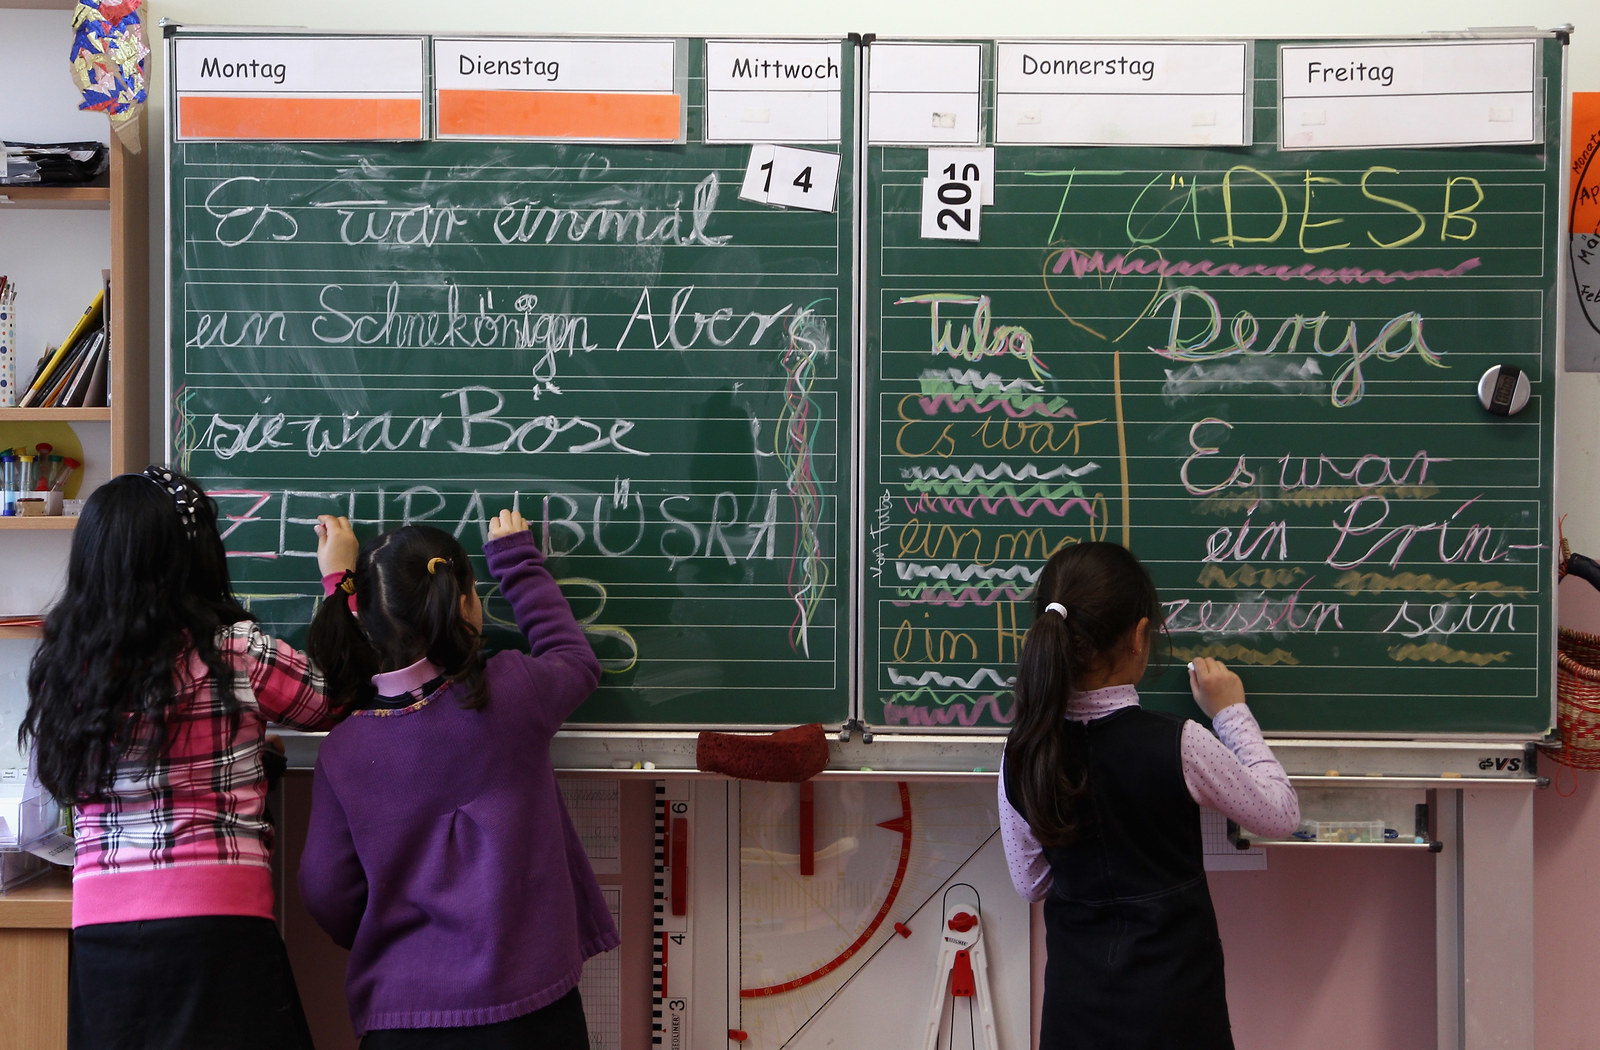 Montag
Dienstag
Mittwoch
Donnerstag
Freitag
14
2015
Es war einmal
ein Schnekönigin Aber
sie war Böse
ZEHRA BÜŞRA
TÜDESB
Tuba
Es war
einmal
ein H
Von Tuba
Derya
Es war
ein Prin-
zessin sein
VS
6
4
3